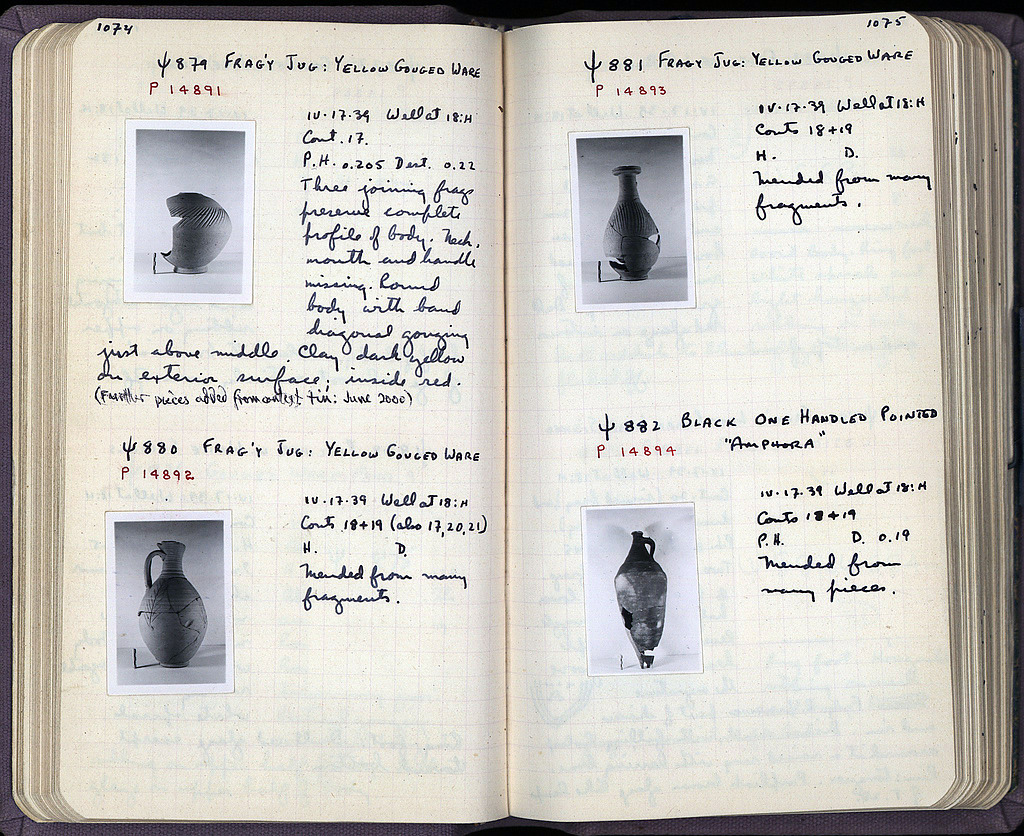 1074
ψ 879 FRAG'Y JUG: YELLOW GOUGED WARE
P 14891
IV·17·39 Well at 18:H
Cont. 17.
P.H. 0.205 Dest. 0.22
Three joining frags
preserve complete
profile of body. Neck,
mouth and handle
missing. Round
body with band
diagonal gouging
just above middle. Clay dark yellow
on exterior surface; inside red.
(Further pieces added from context tin: June 2000)
ψ 880 FRAG'Y JUG: YELLOW GOUGED WARE
P 14892
IV·17·39 Well at 18:H
Conts 18+19 (also 17,20,21)
H. D.
Mended from many
fragments.
1075
ψ 881 FRAGY JUG: YELLOW GOUGED WARE
P 14893
IV·17·39 Well at 18:H
Conts 18+19
H. D.
Mended from many
fragments.
ψ 882 BLACK ONE HANDLED POINTED
"AMPHORA"
P 14894
IV·17·39 Well at 18:H
Conts 18+19
P.H. D. 0.19
Mended from
many pieces.